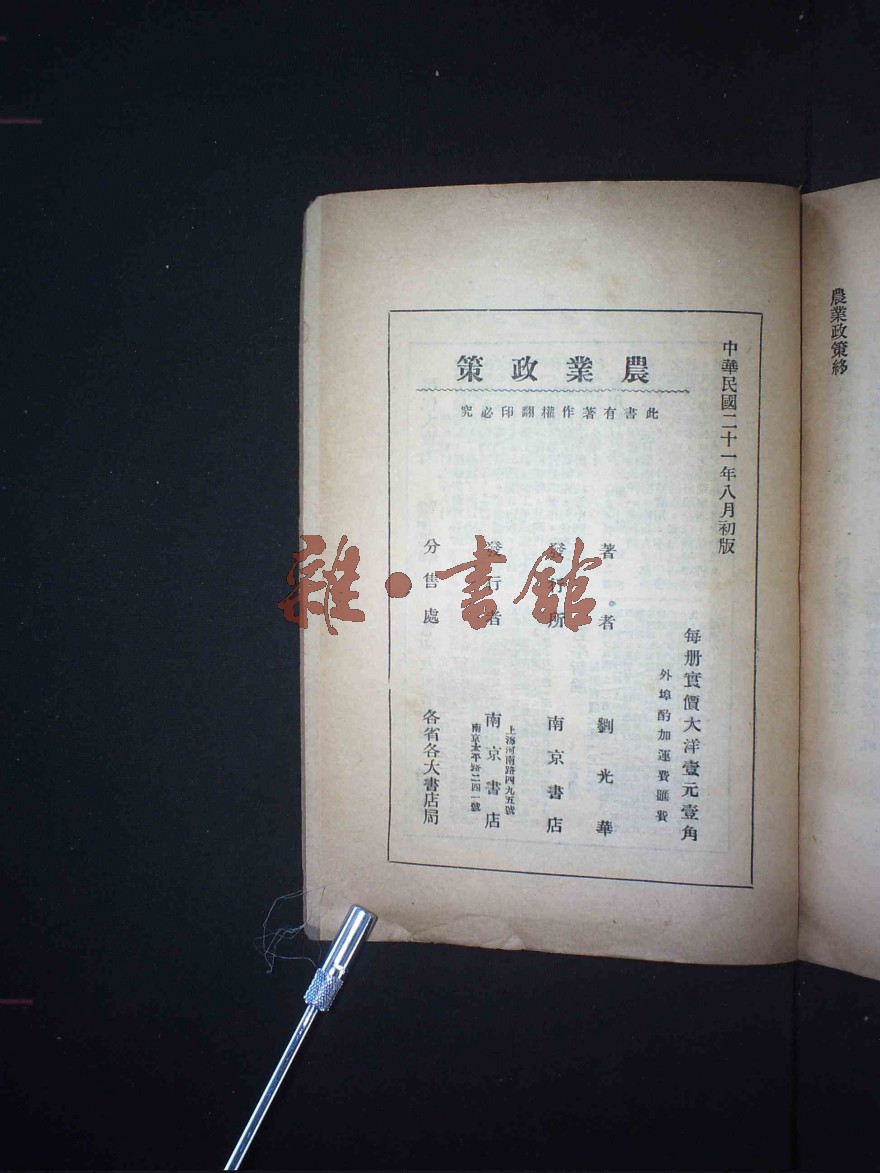 農業政策終
中華民國二十一年八月初版
農業政策
此書有著作權翻印必究
每册實價大洋壹元壹角
外埠酌加運費匯費
著者 劉光華
發行所 南京書店
發行者 南京書店
上海河南路四九五號
南京太平路二四一號
分售處 各省各大書店局
雜·書館